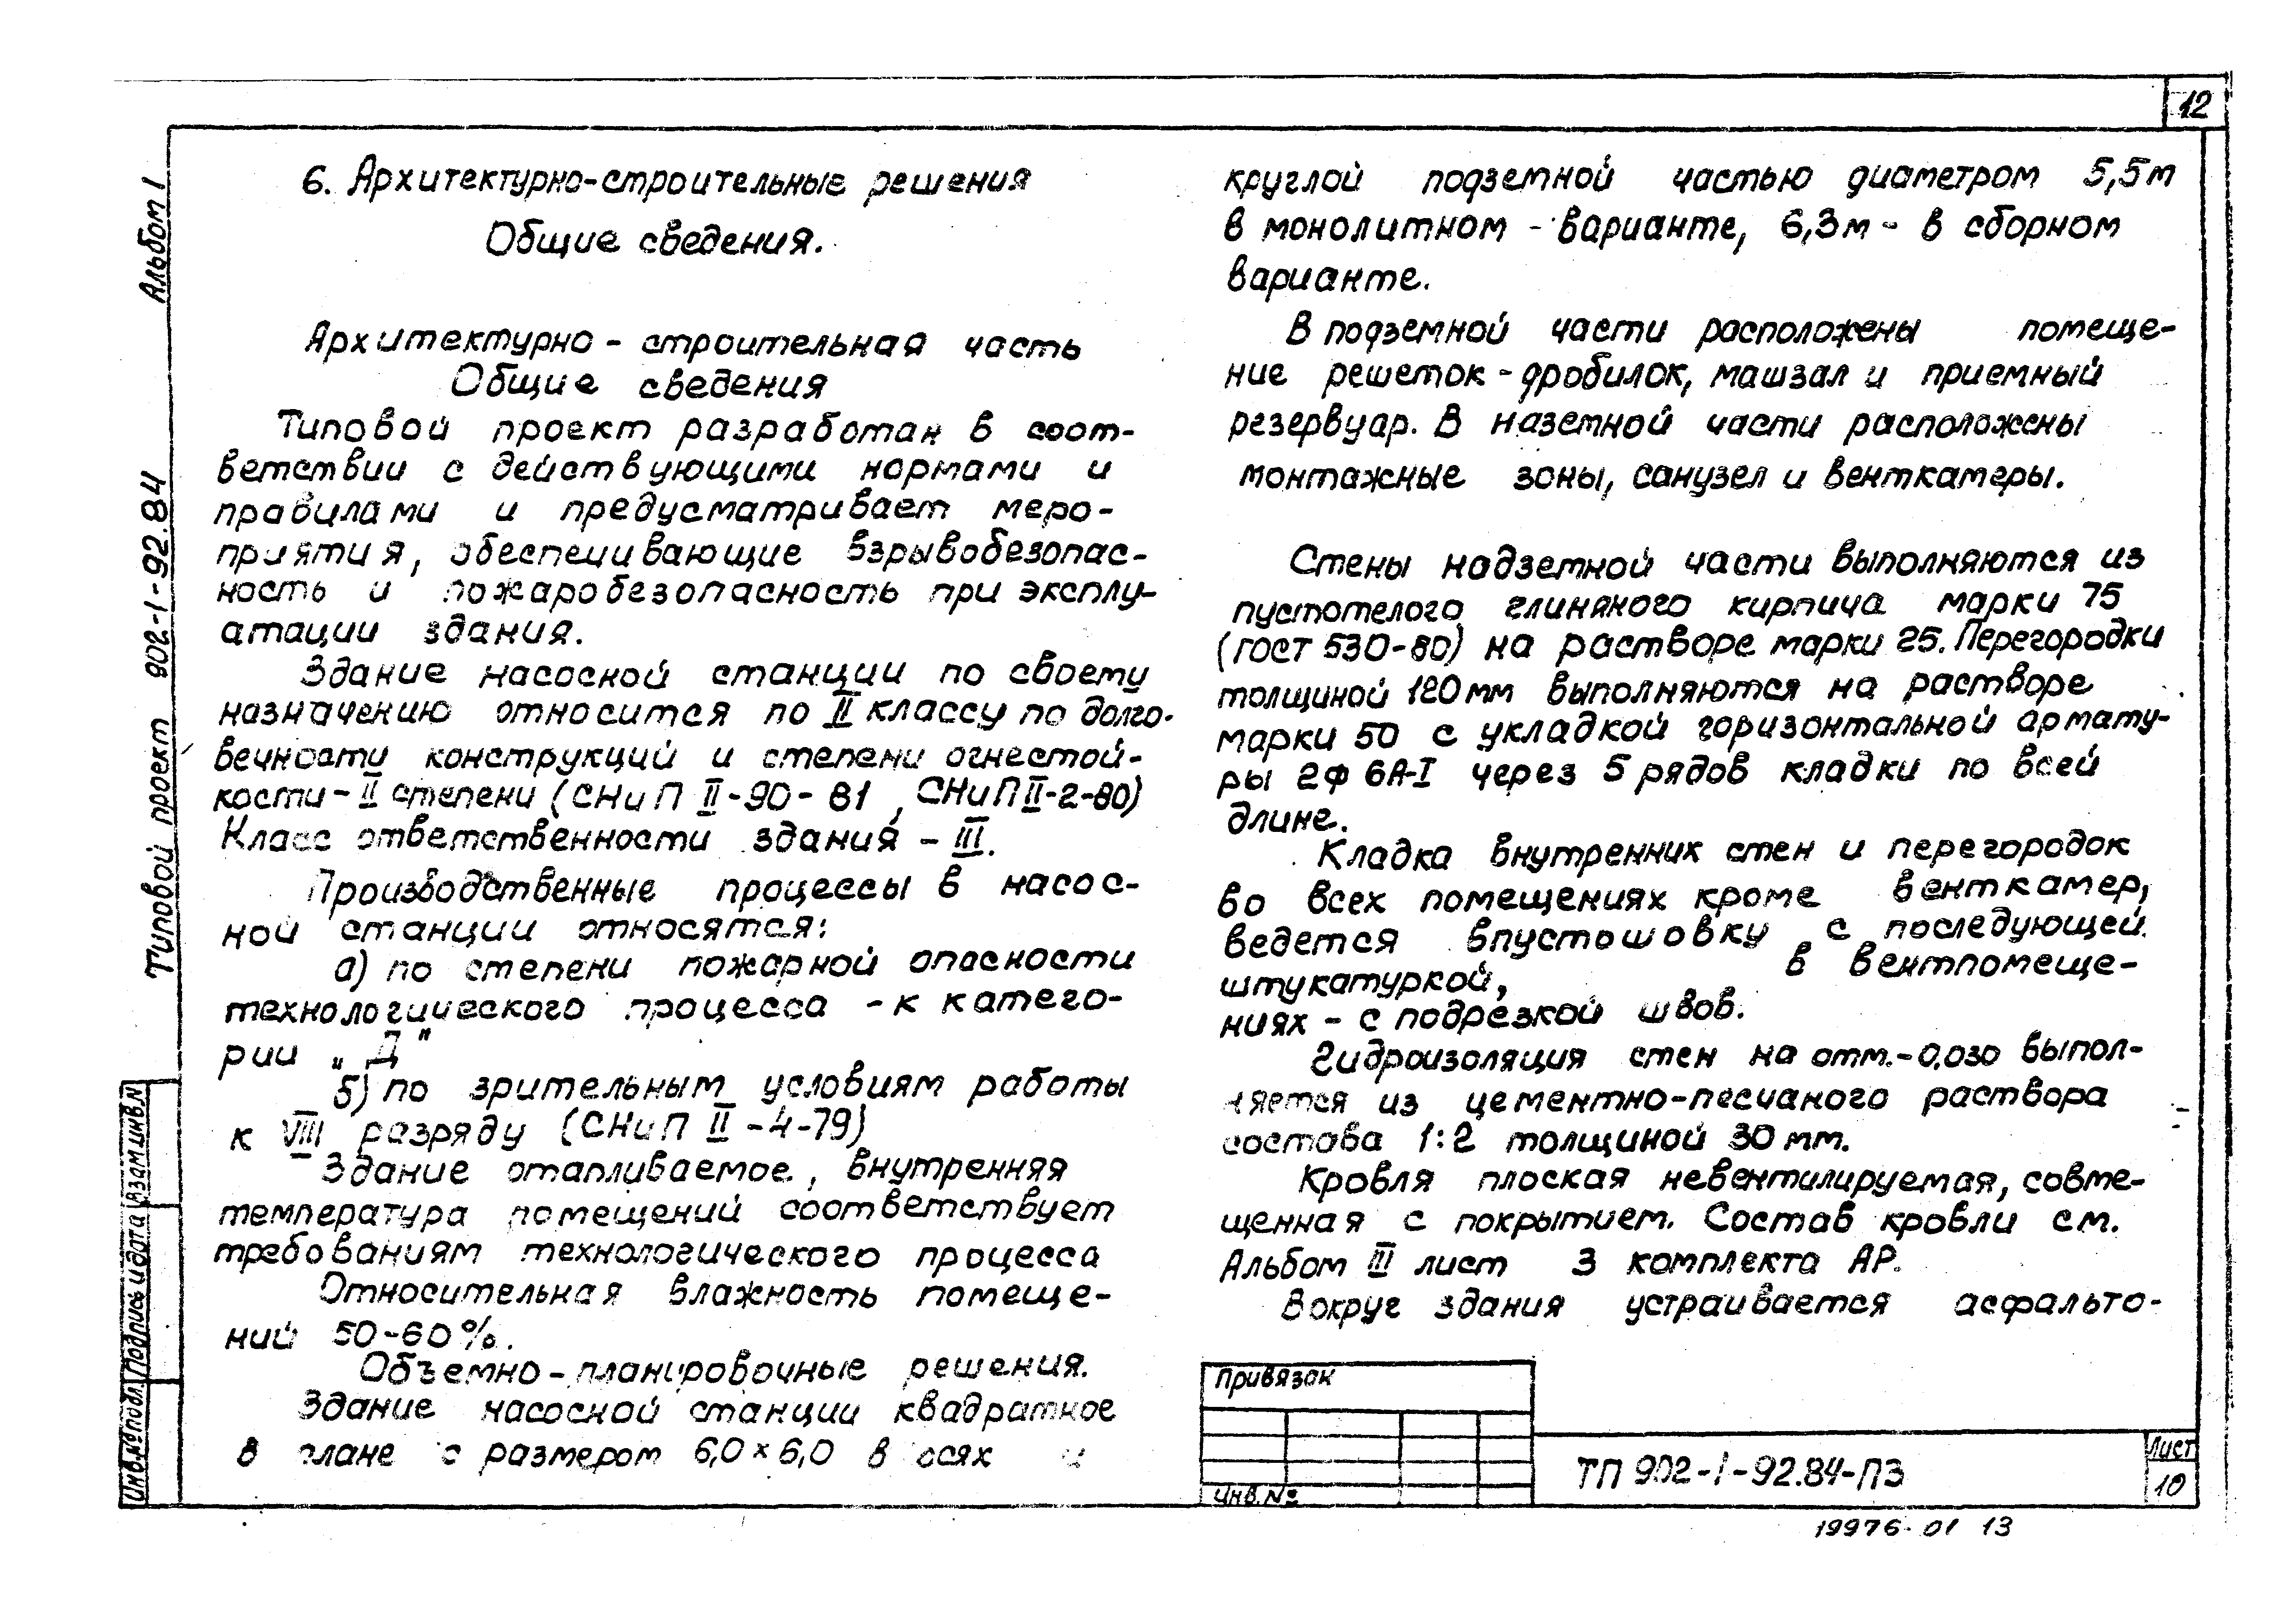 12
Альбом I
Типовой проект 902-1-92.84
6. Архитектурно-строительные решения
Общие сведения.
Архитектурно - строительная часть
Общие сведения
Типовой проект разработан в соот-
ветствии с действующими нормами и
правилами и предусматривает меро-
приятия, обеспечивающие взрывобезопас-
ность и пожаробезопасность при эксплу-
атации здания.
Здание насосной станции по своему
назначению относится по II классу по долго-
вечности конструкций и степени огнестой-
кости - II степени (СНиП II-90-81, СНиП II-2-80)
Класс ответственности здания - III.
Производственные процессы в насос-
ной станции относятся:
а) по степени пожарной опасности
технологического процесса - к катего-
рии „Д"
б) по зрительным условиям работы
к VIII разряду (СНиП II-4-79)
Здание отапливаемое, внутренняя
температура помещений соответствует
требованиям технологического процесса
Относительная влажность помеще-
ний 50-60%.
Объемно-планировочные решения.
Здание насосной станции квадратное
в плане с размером 6,0×6,0 в осях и
круглой подземной частью диаметром 5,5м
в монолитном - варианте, 6,3м - в сборном
варианте.
В подземной части расположены помеще-
ние решеток-дробилок, машзал и приемный
резервуар. В наземной части расположены
монтажные зоны, санузел и венткамеры.
Стены надземной части выполняются из
пустотелого глиняного кирпича марки 75
(ГОСТ 530-80) на растворе марки 25. Перегородки
толщиной 120мм выполняются на растворе
марки 50 с укладкой горизонтальной армату-
ры 2ф 6А-I через 5 рядов кладки по всей
длине.
Кладка внутренних стен и перегородок
во всех помещениях кроме венткамер,
ведется впустошовку с последующей
штукатуркой, в вентпомеще-
ниях - с подрезкой швов.
Гидроизоляция стен на отм.-0,030 выпол-
няется из цементно-песчаного раствора
состава 1:2 толщиной 30мм.
Кровля плоская невентилируемая, совме-
щенная с покрытием. Состав кровли см.
Альбом III лист 3 комплекта АР.
Вокруг здания устраивается асфальто-
Привязан
Инв.№
ТП 902-1-92.84-ПЗ
Лист
10
Взам инв.N
Подпись и дата
Инв.№ подл.
19976-01 13